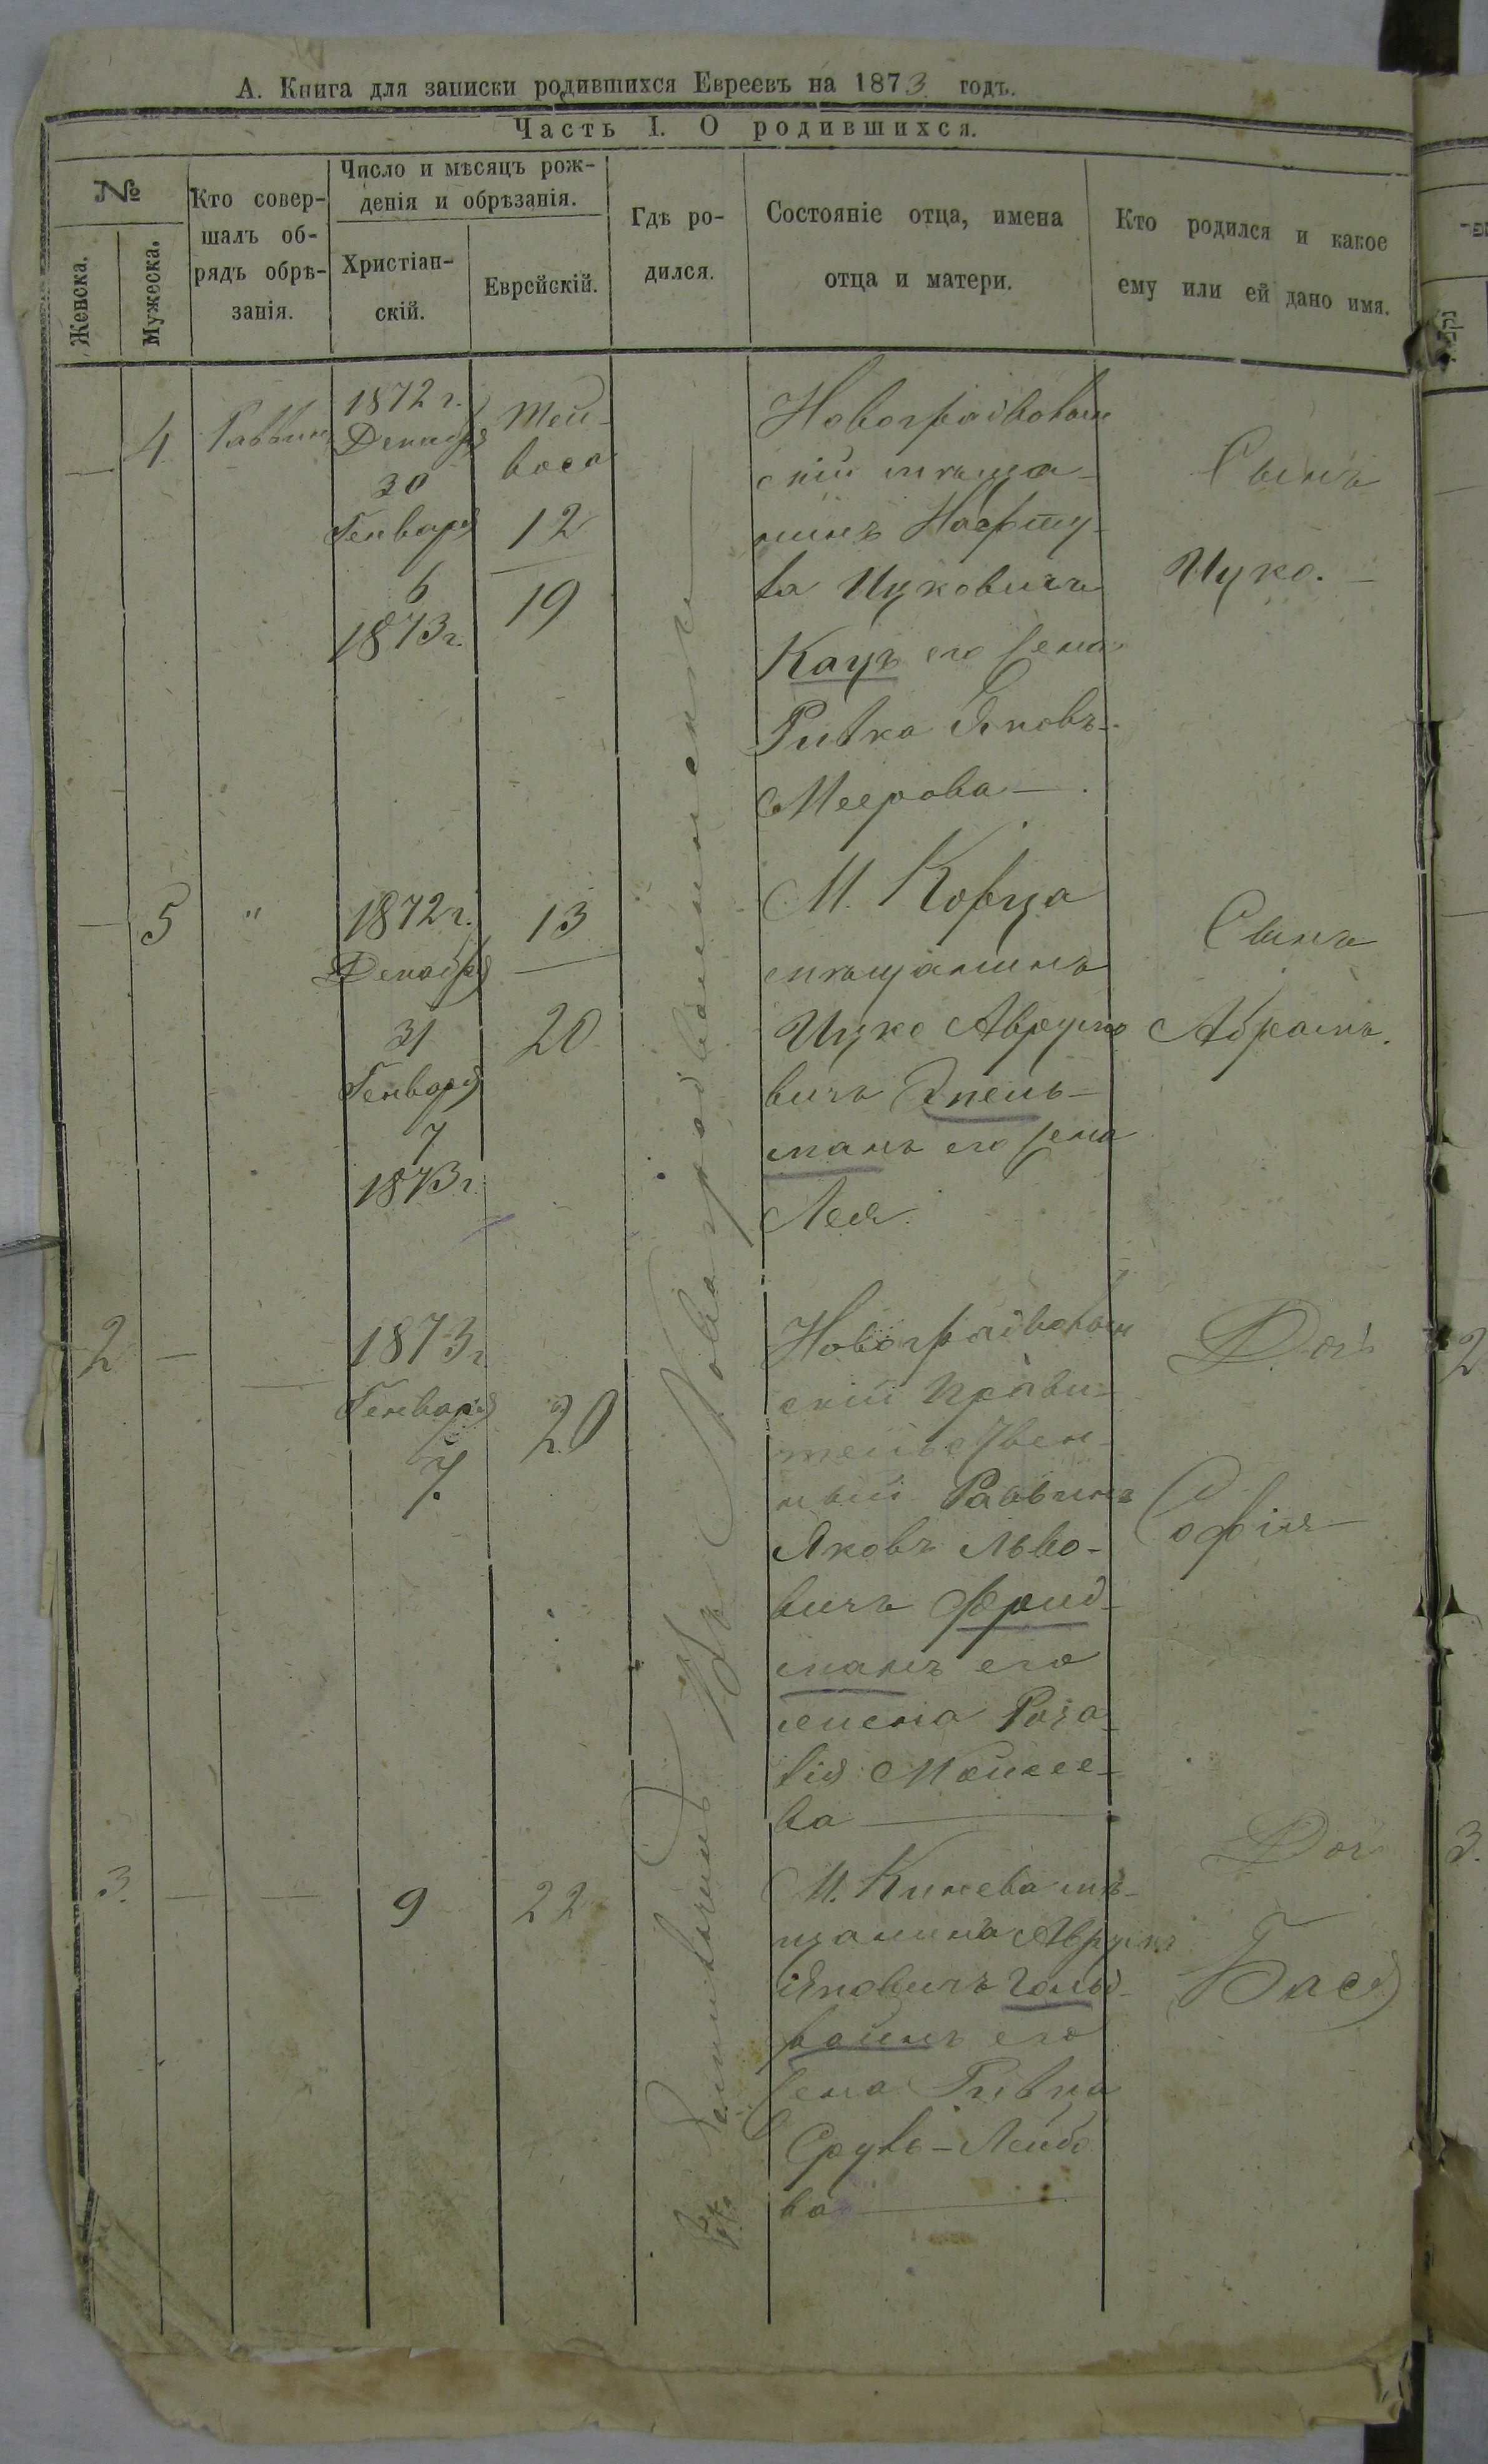 А. Книга для записки родившихся Евреевъ на 1873 годъ.
Часть I. О родившихся.
№
Женска.
Мужеска.
Кто совер-
шалъ об-
рядъ обрѣ-
занія.
Число и мѣсяцъ рож-
денія и обрѣзанія.
Христіан-
скій.
Еврейскій.
Гдѣ ро-
дился.
Состояніе отца, имена
отца и матери.
Кто родился и какое
ему или ей дано имя.
—
4
Раввинъ
1872 г.
Декабря
30
Генваря
6
1873 г.
Тей-
веса
12
19
Новоградволын
скій мѣща-
нинъ
Ицковичъ
Кацъ его жена
Ривка Яновъ-
Меерова —
Сынъ
Ицко. —
—
5
"
1872 г.
Декабря
31
Генваря
7
1873 г.
13
20
М. Корца
мѣщанинъ
Ицко Аврумо
вичъ Эпель-
манъ его жена
Лея.
Сынъ
Абрамъ.
2
—
—
1873 г
Генваря
7.
20
Новоградволын
скій Прави-
тельствен-
ный Раввинъ
Яковъ Льво-
вичъ Фрид-
манъ его
жена Роза-
лія Моисее-
ва —
Дочь
Софія —
3.
—
—
9
22
М. Киева мѣ-
щанинъ Аврумъ
Яновичъ Гольд-
файнъ его
жена Ривка
Срулъ-Лейбо
ва —
Дочь
Бася
Въ Новоградволынскѣ
2
3.